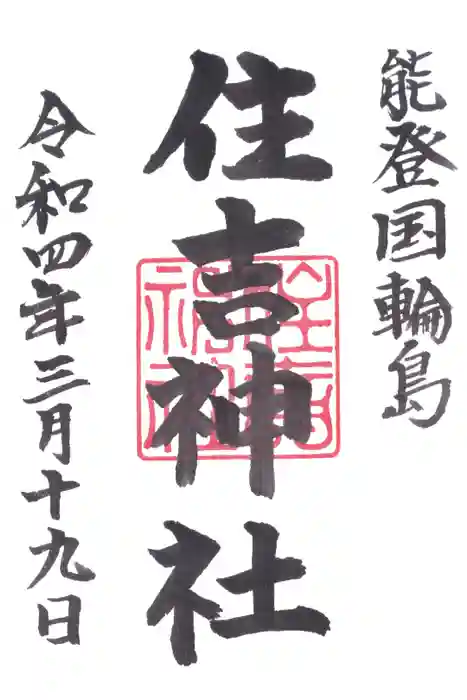 能登国輪島
住吉神社
令和四年三月十九日